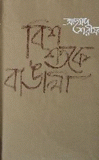 আহমদ শরীফ
বিশ
শতকে
বাঙালী